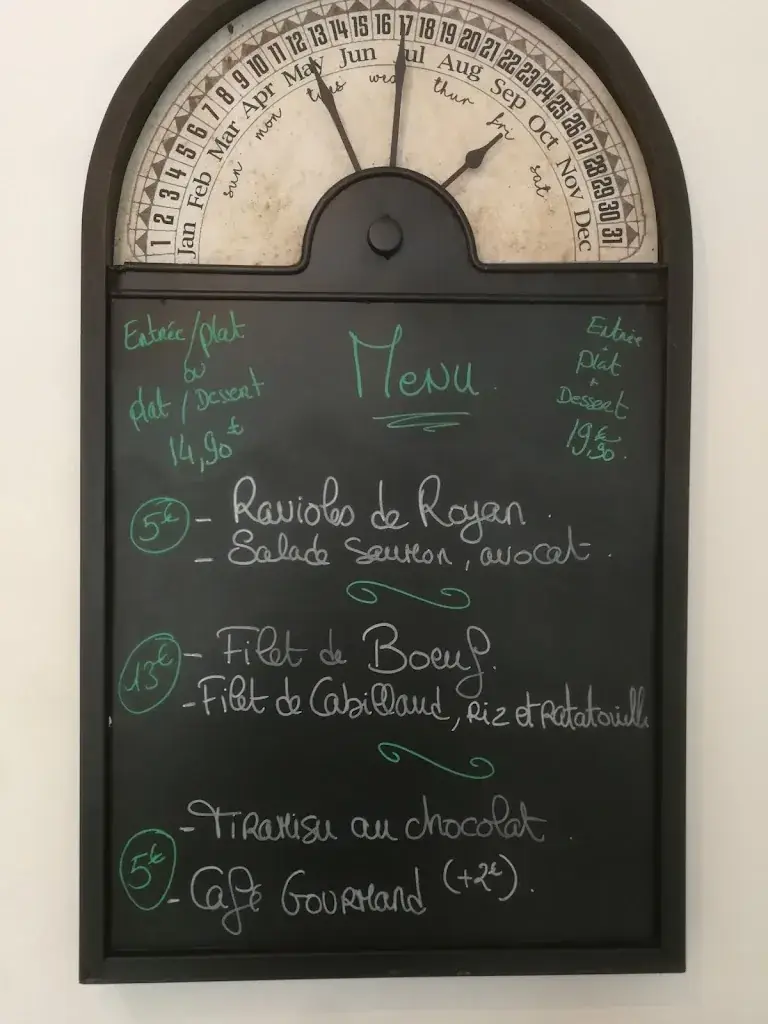 1 2 3 4 5 6 7 8 9 10 11 12 13 14 15 16 17 18 19 20 21 22 23 24 25 26 27 28 29 30 31
Jan Feb Mar Apr May Jun Jul Aug Sep Oct Nov Dec
sun mon tues wed thur fri sat
Entrée/plat
ou
plat/Dessert
14,90€
Menu
Entrée
+
plat
+
Dessert
19€90.
5€ - Ravioles de Royan.
- Salade Saumon, avocat.
13€ - Filet de Boeuf.
- Filet de Cabillaud, Riz et Ratatouille
- Tiramisu au chocolat.
5€
- Café Gourmand (+2€).